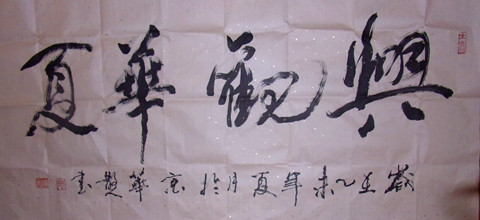 興觀華夏
歲在乙未年夏月於京華題書